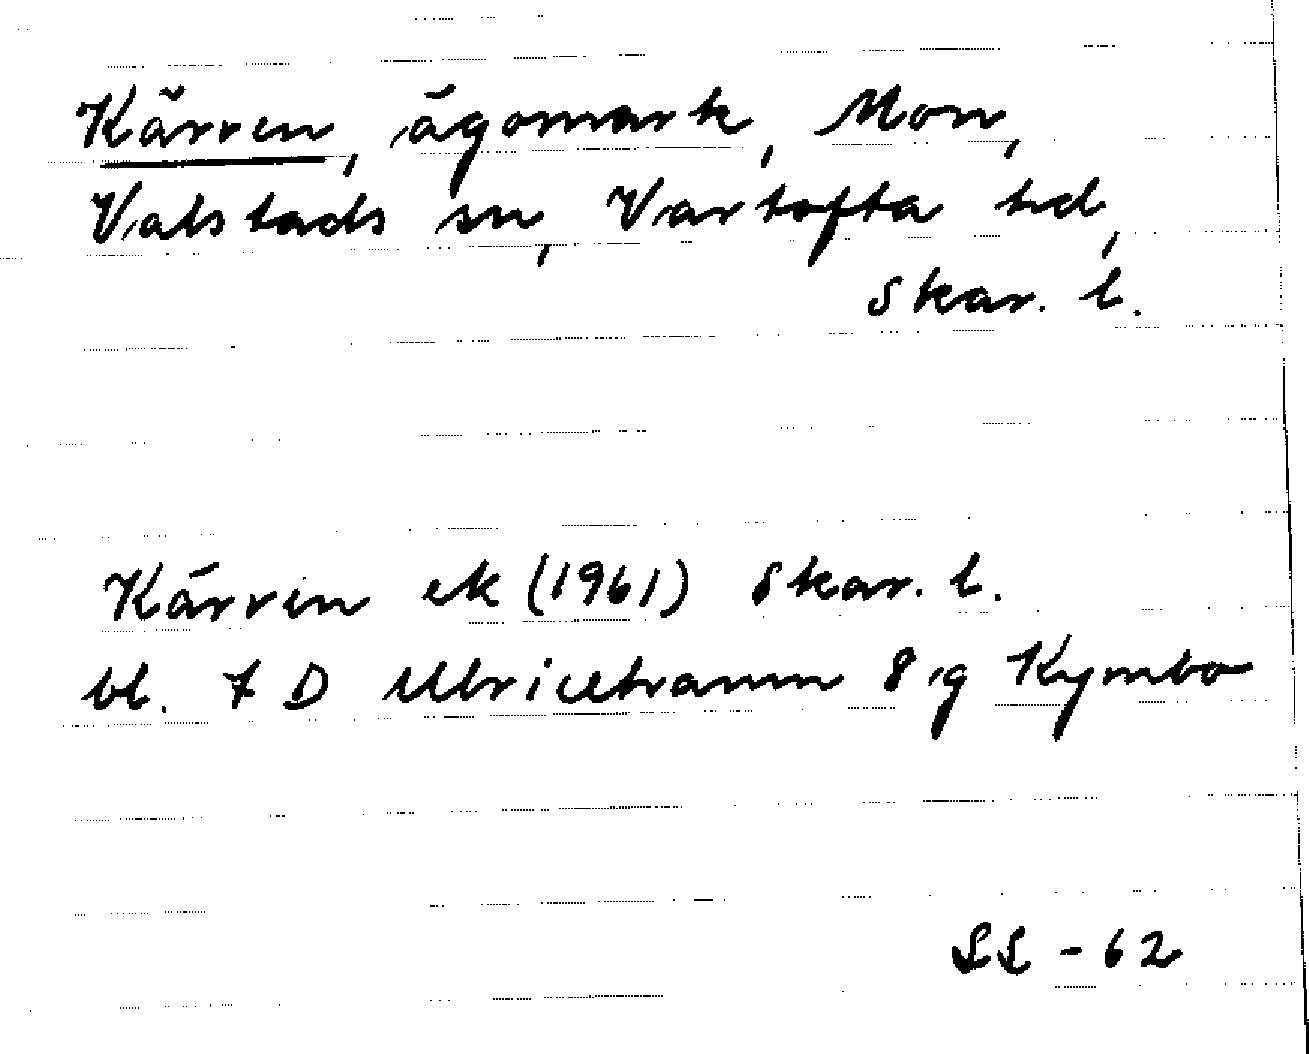 Kärven, ägomark, Mon,
Valstads sn, Vartofta hd,
Skar. l.
Kärven ek (1961) Skar. l.
bl. 7 D Ulricehamn 8 g Kymbo
SL - 62